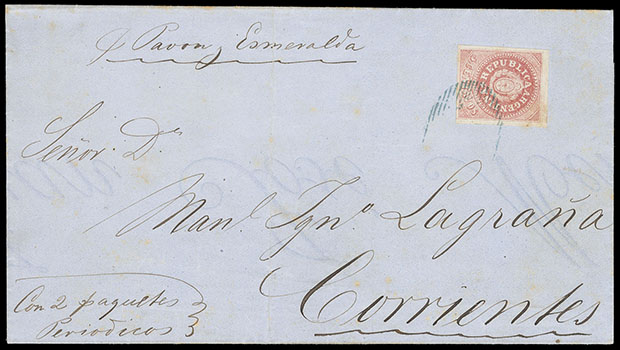 Pavon y Esmeralda
REPUBLICA ARGENTINA
Señor Dn
Manl. Ignº Lagraña
Corrientes
Con 2 paquetes
Periodicos